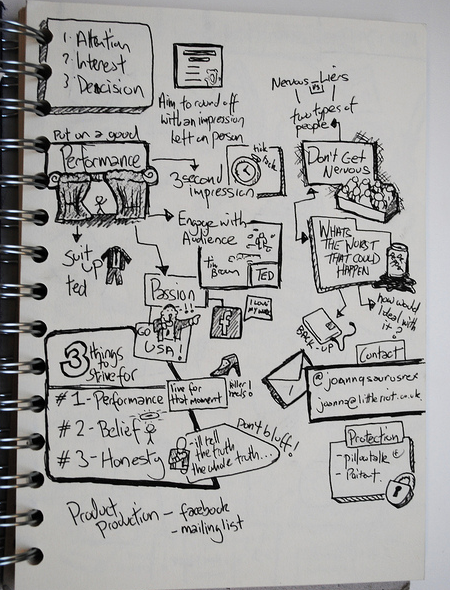 1. Attention
2. Interest
3. Descision
Aim to round off
with an impression
left on person
Nervous
VS
Liers
two types of
people
Put on a good
Performance
3 second
impression
tik
tock
Don't Get
Nervous
Engage with
Audience
Tim
Brown
TED
What's
the worst
that could
happen
how would
I deal with
it?
Back-up
Suit
up
ted
Passion
!!
Go
USA!
f
I love
my work
3 things
to
strive for
#1 - Performance
#2 - Belief
#3 - Honesty
live for
that moment
killer
heels!
Don't bluff!
- ill tell
the truth
the whole truth...
Contact
@joannasaurusrex
joanna@littleriot.co.uk
Protection
- pillowtalk
Product
Production - facebook
- mailing list